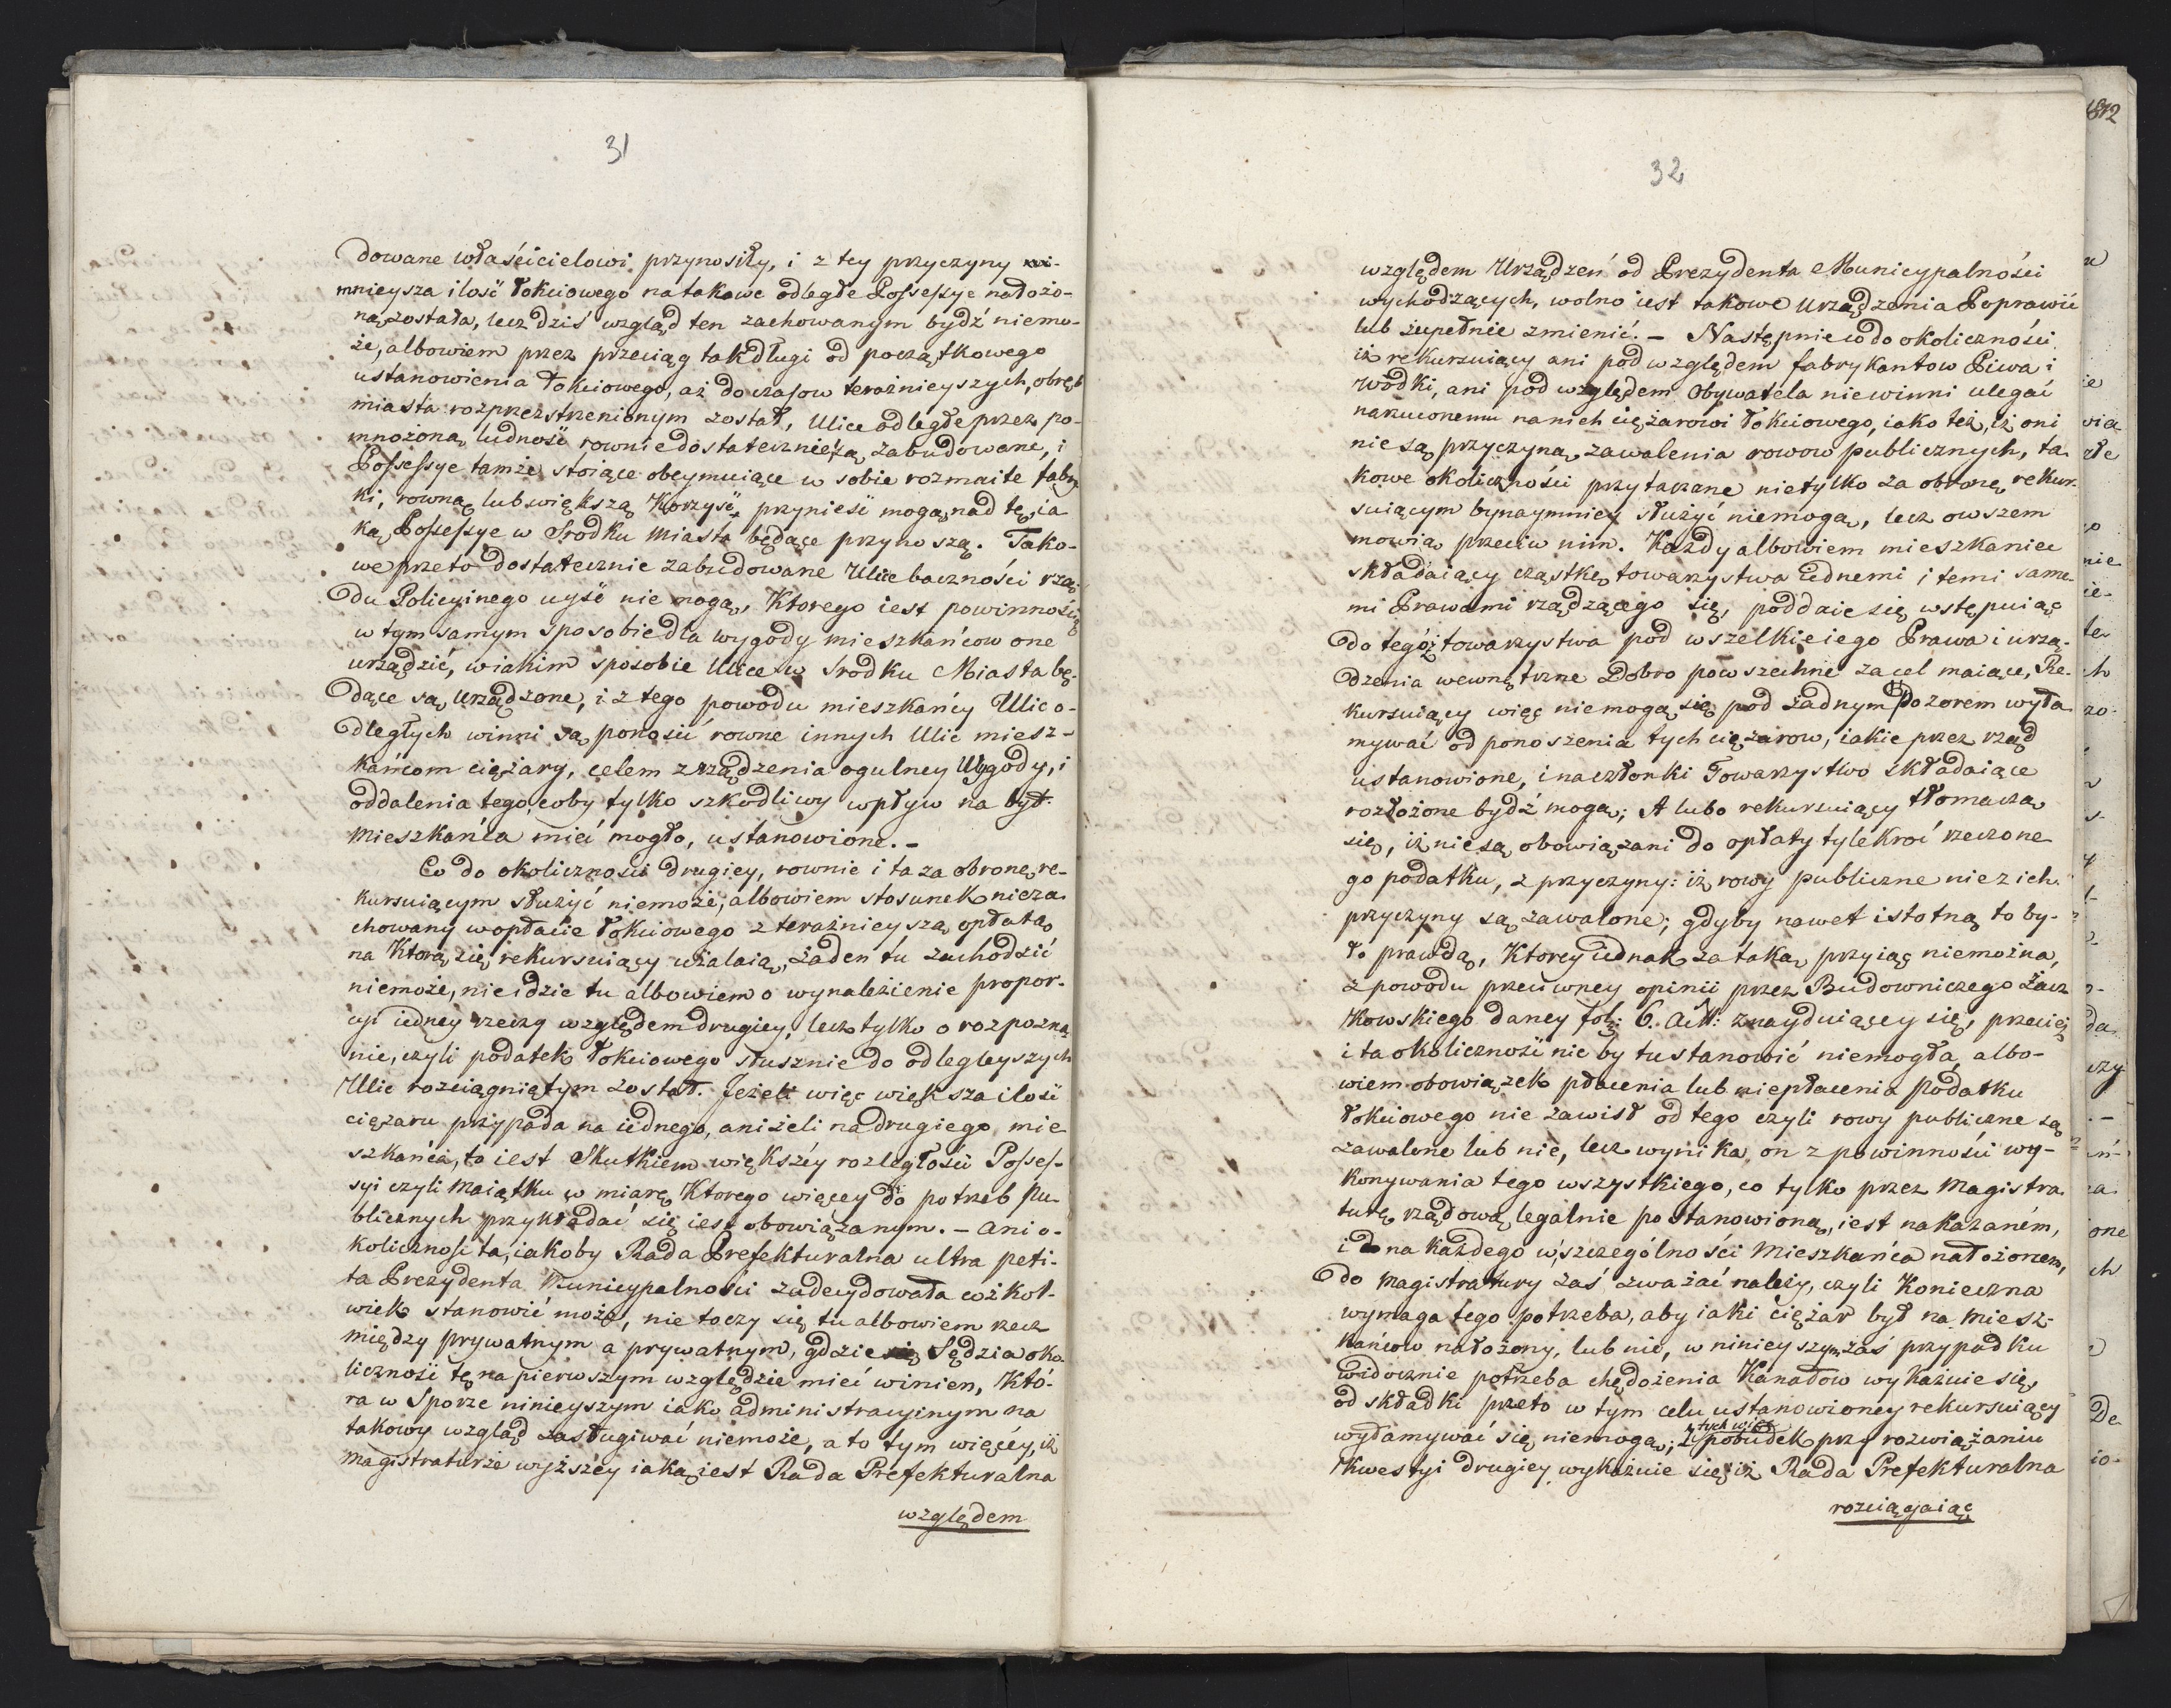 31
dowane właścicielowi przynosiły, i z tey przyczyny
mnieysza ilość łokciowego na takowe odległe Possessye nałożo-
ną została, lecz dziś wzgląd ten zachowanym bydź niemo-
że, albowiem przez przeciąg tak długi od początkowego
ustanowienia łokciowego, aż do czasow teraźnieyszych, obręb
miasta rozprzestrzenionym został, Ulice odległe przez po-
mnożoną ludność rownie dostatecznie są zabudowane, i
Possessye tamże stoiące obeymuiące w sobie rozmaite fabry
ki, rowną lub większą Korzyść przynieść mogą nad tę, ia
ką Possessye w Srodku Miasta będące przynoszą. Tako-
we przeto dostatecznie zabudowane Ulice baczności rzą-
du Policyinego uyść nie mogą, Ktorego iest powinnością
w tym samym sposobie dla wygody mieszkańcow one
urządzić, w iakim sposobie Ulice w Srodku Miasta bę-
dące są urządzone, i z tego powodu mieszkańcy Ulic o-
dległych winni są ponosić rowne innych Ulic miesz-
kańcom ciężary, celem zrządzenia ogulney Wygody, i
oddalenia tego, coby tylko szkodliwy wpływ na byt
Mieszkańca mieć mogło, ustanowione. -
Co do okoliczności drugiey, rownie i ta za obronę re-
kursuiącym służyć niemoże, albowiem stosunek nieza-
chowany w opłacie łokciowego z teraźnieyszą opłatą
na Ktorą się rekursuiący użalaią, żaden tu zachodzić
niemoże, nie idzie tu albowiem o wynalezienie propor-
cyi iedney rzeczy względem drugiey, lecz tylko o rozpozna
nie, czyli podatek łokciowego słusznie do odlegleyszych
Ulic rozciągniętym został. Jeżeli więc większa ilość
ciężaru przypada na iednego, aniżeli na drugiego mie
szkańca, to iest Skutkiem większey rozległości Posses-
syi czyli Maiątku w miarę Ktorego więcey do potrzeb Pu-
blicznych przykładać się iest obowiązanym. - ani o-
koliczność ta, iakoby Rada Prefekturalna ultra peti-
ta Prezydenta Municypalności zadecydowała cożkol-
wiek stanowić może, nie toczy się tu albowiem rzecz
między prywatnym a prywatnym, gdzie Sędzia oko-
liczność tę na pierwszym względzie mieć winien, Któ-
ra w Sporze ninieyszym iako administracyinym na
takowy wzgląd zasługiwać niemoże, a to tym więcéy, iż
Magistraturze wyższey iaką iest Rada Prefekturalna
względem
32
względem Urządzeń od Prezydenta Municypalności
wychodzących, wolno iest takowe Urządzenia Poprawić
lub zupełnie zmienić. - Następnie co do okoliczności
iż rekursuiący ani pod względem fabrykantow Piwa i
wodki, ani pod względem Obywatela niewinni ulegać
narzuconemu na nich ciężarowi łokciowego, iako też, iż oni
nie są przyczyną zawalenia rowow publicznych, ta-
kowe okoliczności przytaczane nietylko za obronę rekur-
suiącym bynaymniey służyć niemogą, lecz owszem
mowią przeciw nim. Każdy albowiem mieszkaniec
składaiący cząstkę towarzystwa iednemi i temi same-
mi Prawami rządzącego się, poddaie się wstępuiąc
do tegóż towarzystwa pod wszelkie iego Prawa i urzą-
dzenia wewnętrzne Dobro powszechne za cel maiące, Re-
kursuiący więc niemogą się pod żadnym Pozorem wyła
mywać od ponoszenia tych ciężarow, iakie przez rząd
ustanowione, i na członki Towarzystwo składaiące
rozłożone bydź mogą; A lubo rekursuiący tłomaczą
się, iż nie są obowiązani do opłaty tylekroć rzeczone
go podatku, z przyczyny: iż rowy publiczne nie z ich
przyczyny są zawalone; gdyby nawet istotną to by-
ło prawdą, Ktorey iednak za taką przyiąć niemożna,
z powodu przeciwney opinii przez Budowniczego Zacz
Kowskiego daney fol: 6. Act: znayduiącey się, przecież
i ta okoliczność nic by tu stanowić niemogła albo-
wiem obowiązek płacenia lub niepłacenia Podatku
łokciowego nie zawisł od tego czyli rowy publiczne są
zawalone lub nie, lecz wynika on z powinności wy-
konywania tego wszystkiego, co tylko przez Magistra-
turę rządową legalnie postanowioną, iest nakazaném,
i na każdego w szczególności Mieszkańca nałożonem,
do Magistratury zaś zważać należy, czyli Konieczna
wymaga tego potrzeba, aby iaki ciężar był na Miesz-
kańcow nałożony, lub nie, w ninieyszym zaś przypadku
widocznie potrzeba chędożenia Kanałow wykazuie się,
od składki przeto w tym celu ustanowioney rekursuiący
wyłamywać się niemogą; z tych więc pobudek przy rozwiązaniu
Kwestyi drugiey wykazuie się iż Rada Prefekturalna
rozciągaiąc